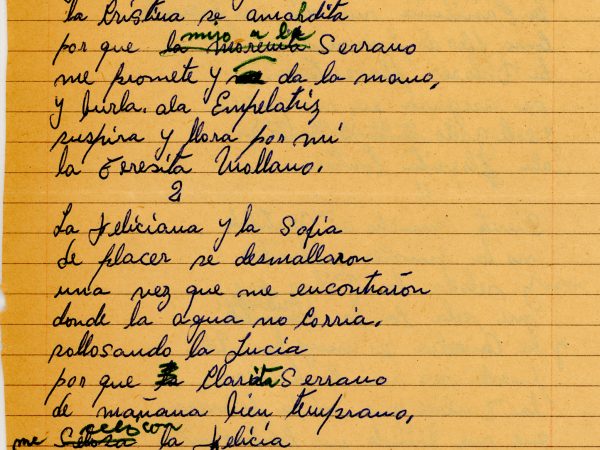 la Cristina se amardita
por que la morena mijo a la Serrano
me promete y da la mano,
y burla ala Empelatriz
suspira y llora por mi
la Teresita Mollano.
2
La Feliciana y la Sofia
de placer se desmallaron
una vez que me encontrarón
donde la agua no corria.
sollosando la Lucia
por que Clarita Serrano
de mañana bien temprano,
me celo con la Felicia